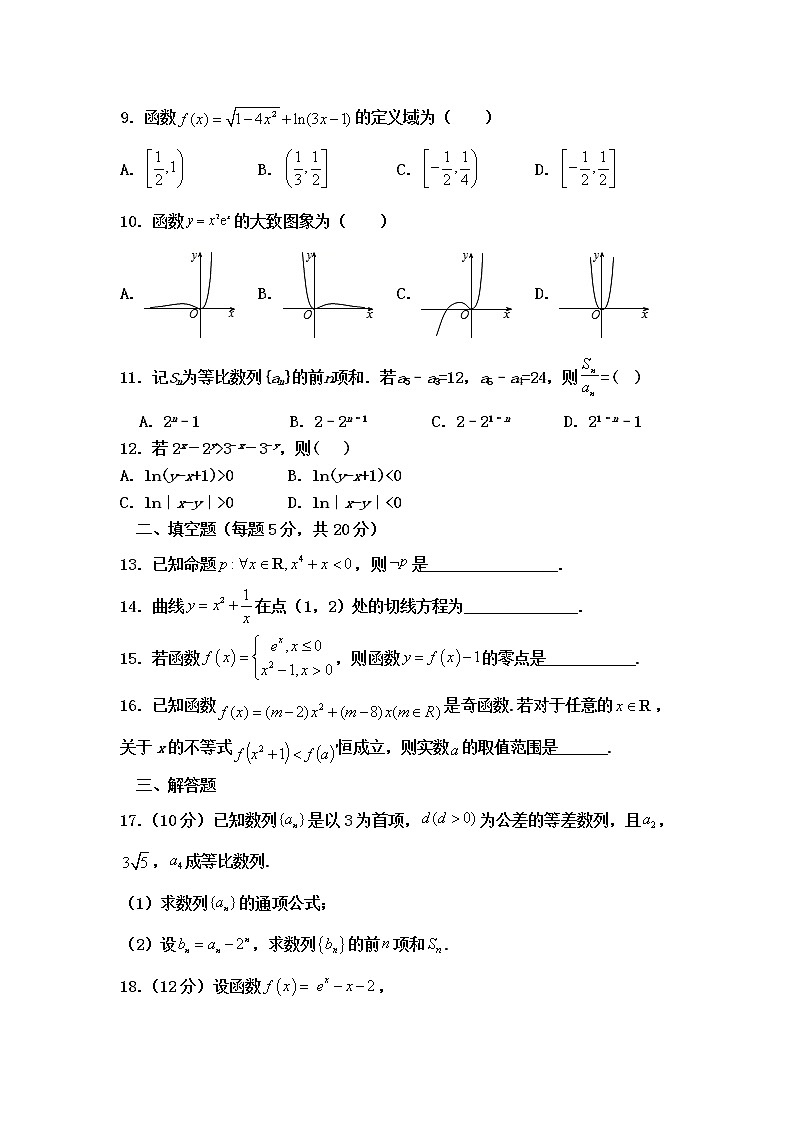 9. 函数 f(x)=√(1-4x²)+ln(3x-1) 的定义域为(    )
A. [1/2,1)    B. (1/3,1/2]    C. [-1/2,1/4)    D. [-1/2,1/2]
10. 函数 y=x²eˣ 的大致图象为(    )
A. y O x    B. y O x    C. y O x    D. y O x
11. 记Sₙ为等比数列{aₙ}的前n项和. 若a₅-a₃=12, a₆-a₄=24, 则 Sₙ/aₙ=(  )
A. 2ⁿ-1    B. 2-2ⁿ⁻¹    C. 2-2¹⁻ⁿ    D. 2¹⁻ⁿ-1
12. 若 2ˣ-2ʸ>3⁻ˣ-3⁻ʸ, 则(  )
A. ln(y-x+1)>0    B. ln(y-x+1)<0
C. ln|x-y|>0    D. ln|x-y|<0
二、填空题（每题5分，共20分）
13. 已知命题 p:∀x∈R,x⁴+x<0, 则 ¬p 是________________.
14. 曲线 y=x²+1/x 在点（1，2）处的切线方程为______________.
15. 若函数 f(x)={eˣ,x≤0 x²-1,x>0, 则函数 y=f(x)-1 的零点是___________.
16. 已知函数 f(x)=(m-2)x²+(m-8)x(m∈R) 是奇函数.若对于任意的 x∈R,
关于x的不等式 f(x²+1)<f(a) 恒成立, 则实数a的取值范围是______.
三、解答题
17.（10分）已知数列{aₙ}是以3为首项, d(d>0) 为公差的等差数列, 且a₂,
3√5, a₄成等比数列.
（1）求数列{aₙ}的通项公式;
（2）设bₙ=aₙ-2ⁿ, 求数列{bₙ}的前n项和Sₙ.
18.（12分）设函数 f(x)= eˣ-x-2,